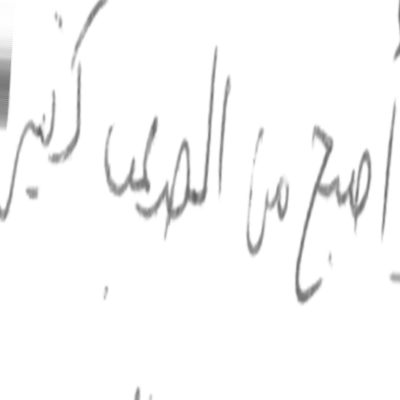 أصبح من الصعب كثير